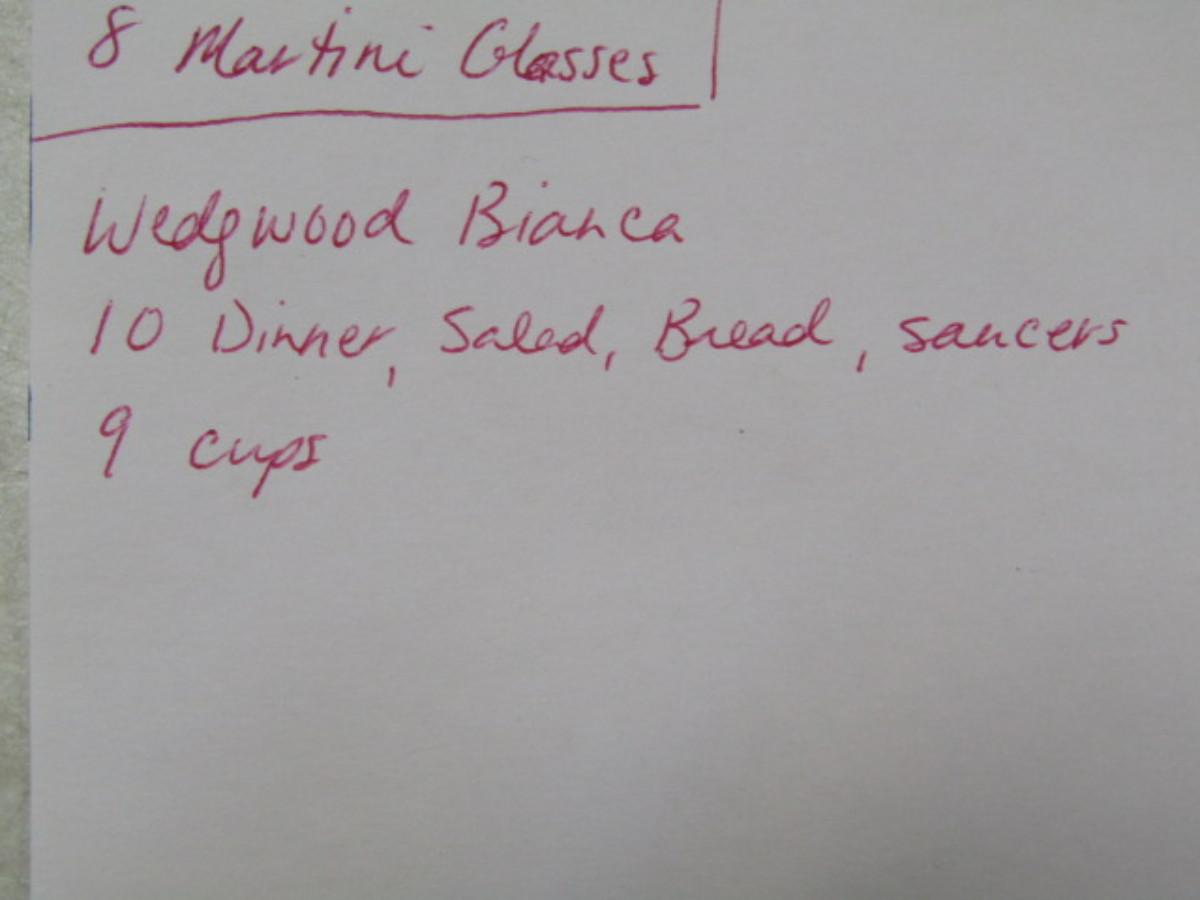 8 Martini Glasses
Wedgwood Bianca
10 Dinner, Salad, Bread, saucers
9 cups